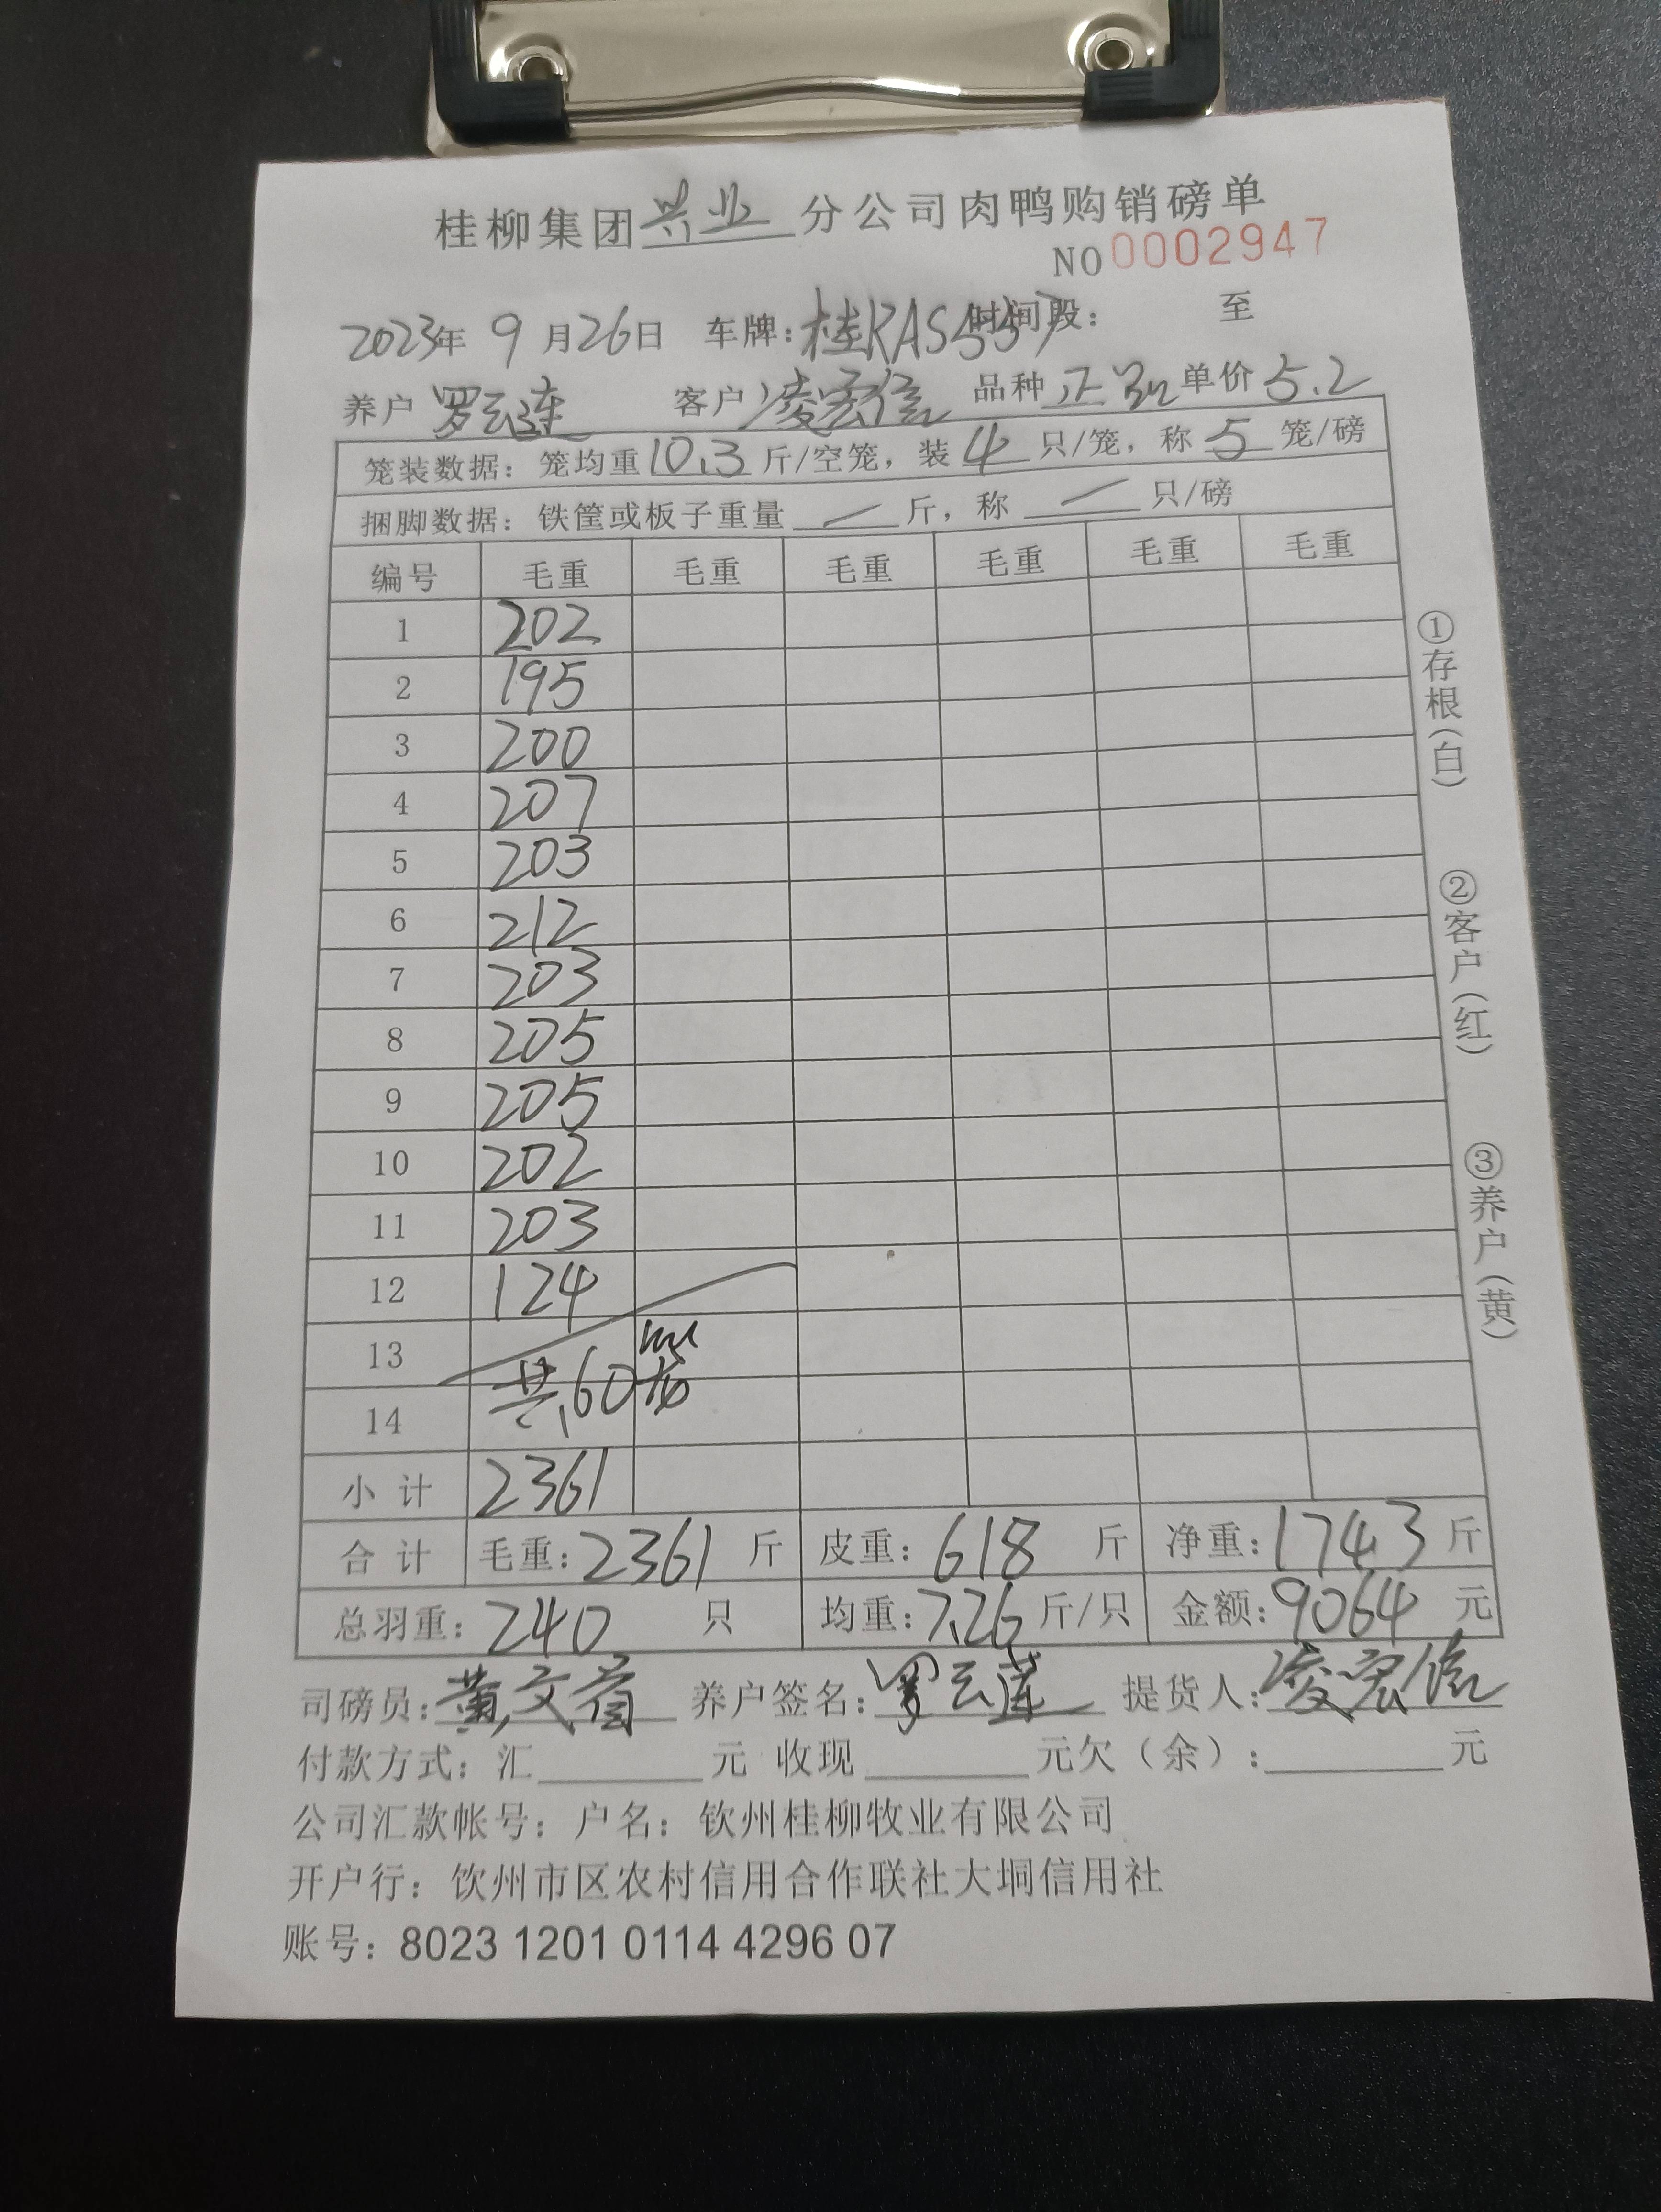 桂柳集团兴业分公司肉鸭购销磅单
NO 0002947
2023年 9月26日 车牌：桂KAS557 时间段： 至
养户 罗云莲 客户 凌宏信 品种 正 单价 5.2
笼装数据：笼均重10.3斤/空笼，装4只/笼，称5笼/磅
捆脚数据：铁筐或板子重量 — 斤，称 — 只/磅
编号 毛重 毛重 毛重 毛重 毛重 毛重
1 202
2 195
3 200
4 207
5 203
6 212
7 203
8 205
9 205
10 202
11 203
12 124
13
共60笼
14
小计 2361
合计 毛重：2361 斤 皮重：618 斤 净重：1743 斤
总羽重：240 只 均重：7.26 斤/只 金额：9064 元
司磅员：黄文 养户签名：罗云莲 提货人：凌宏信
付款方式：汇 元 收现 元欠（余）： 元
公司汇款帐号：户名：钦州桂柳牧业有限公司
开户行：饮州市区农村信用合作联社大垌信用社
账号：8023 1201 0114 4296 07
①存根（白）
②客户（红）
③养户（黄）